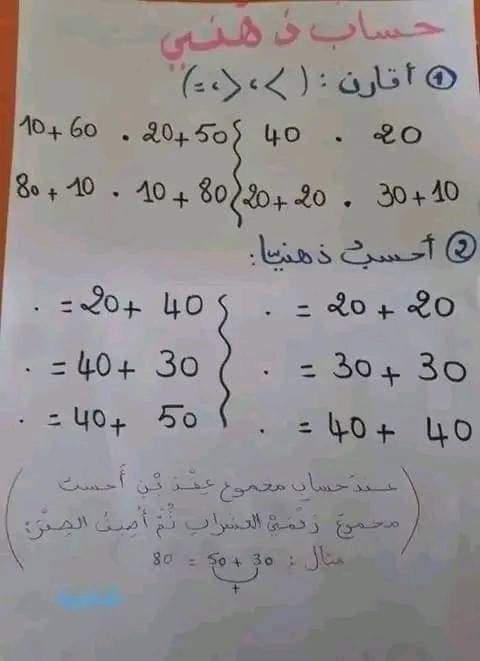 حساب ذهني
① أقارن : (> ، < ، =)
20 . 40 } 20+50 . 10+60
30+10 . 20+20 } 10+80 . 80+10
② أحسب ذهنيا :
20 + 20 = . } 40 + 20 = .
30 + 30 = . } 30 + 40 = .
40 + 40 = . } 50 + 40 = .
(عند حساب مجموع عِقْدَيْنِ أَحسب
مجموعَ رَقْمَيْ العشرات ثُمَّ أُضِيفُ الصِفْرَ:
مثال : 30 + 50 = 80)
+